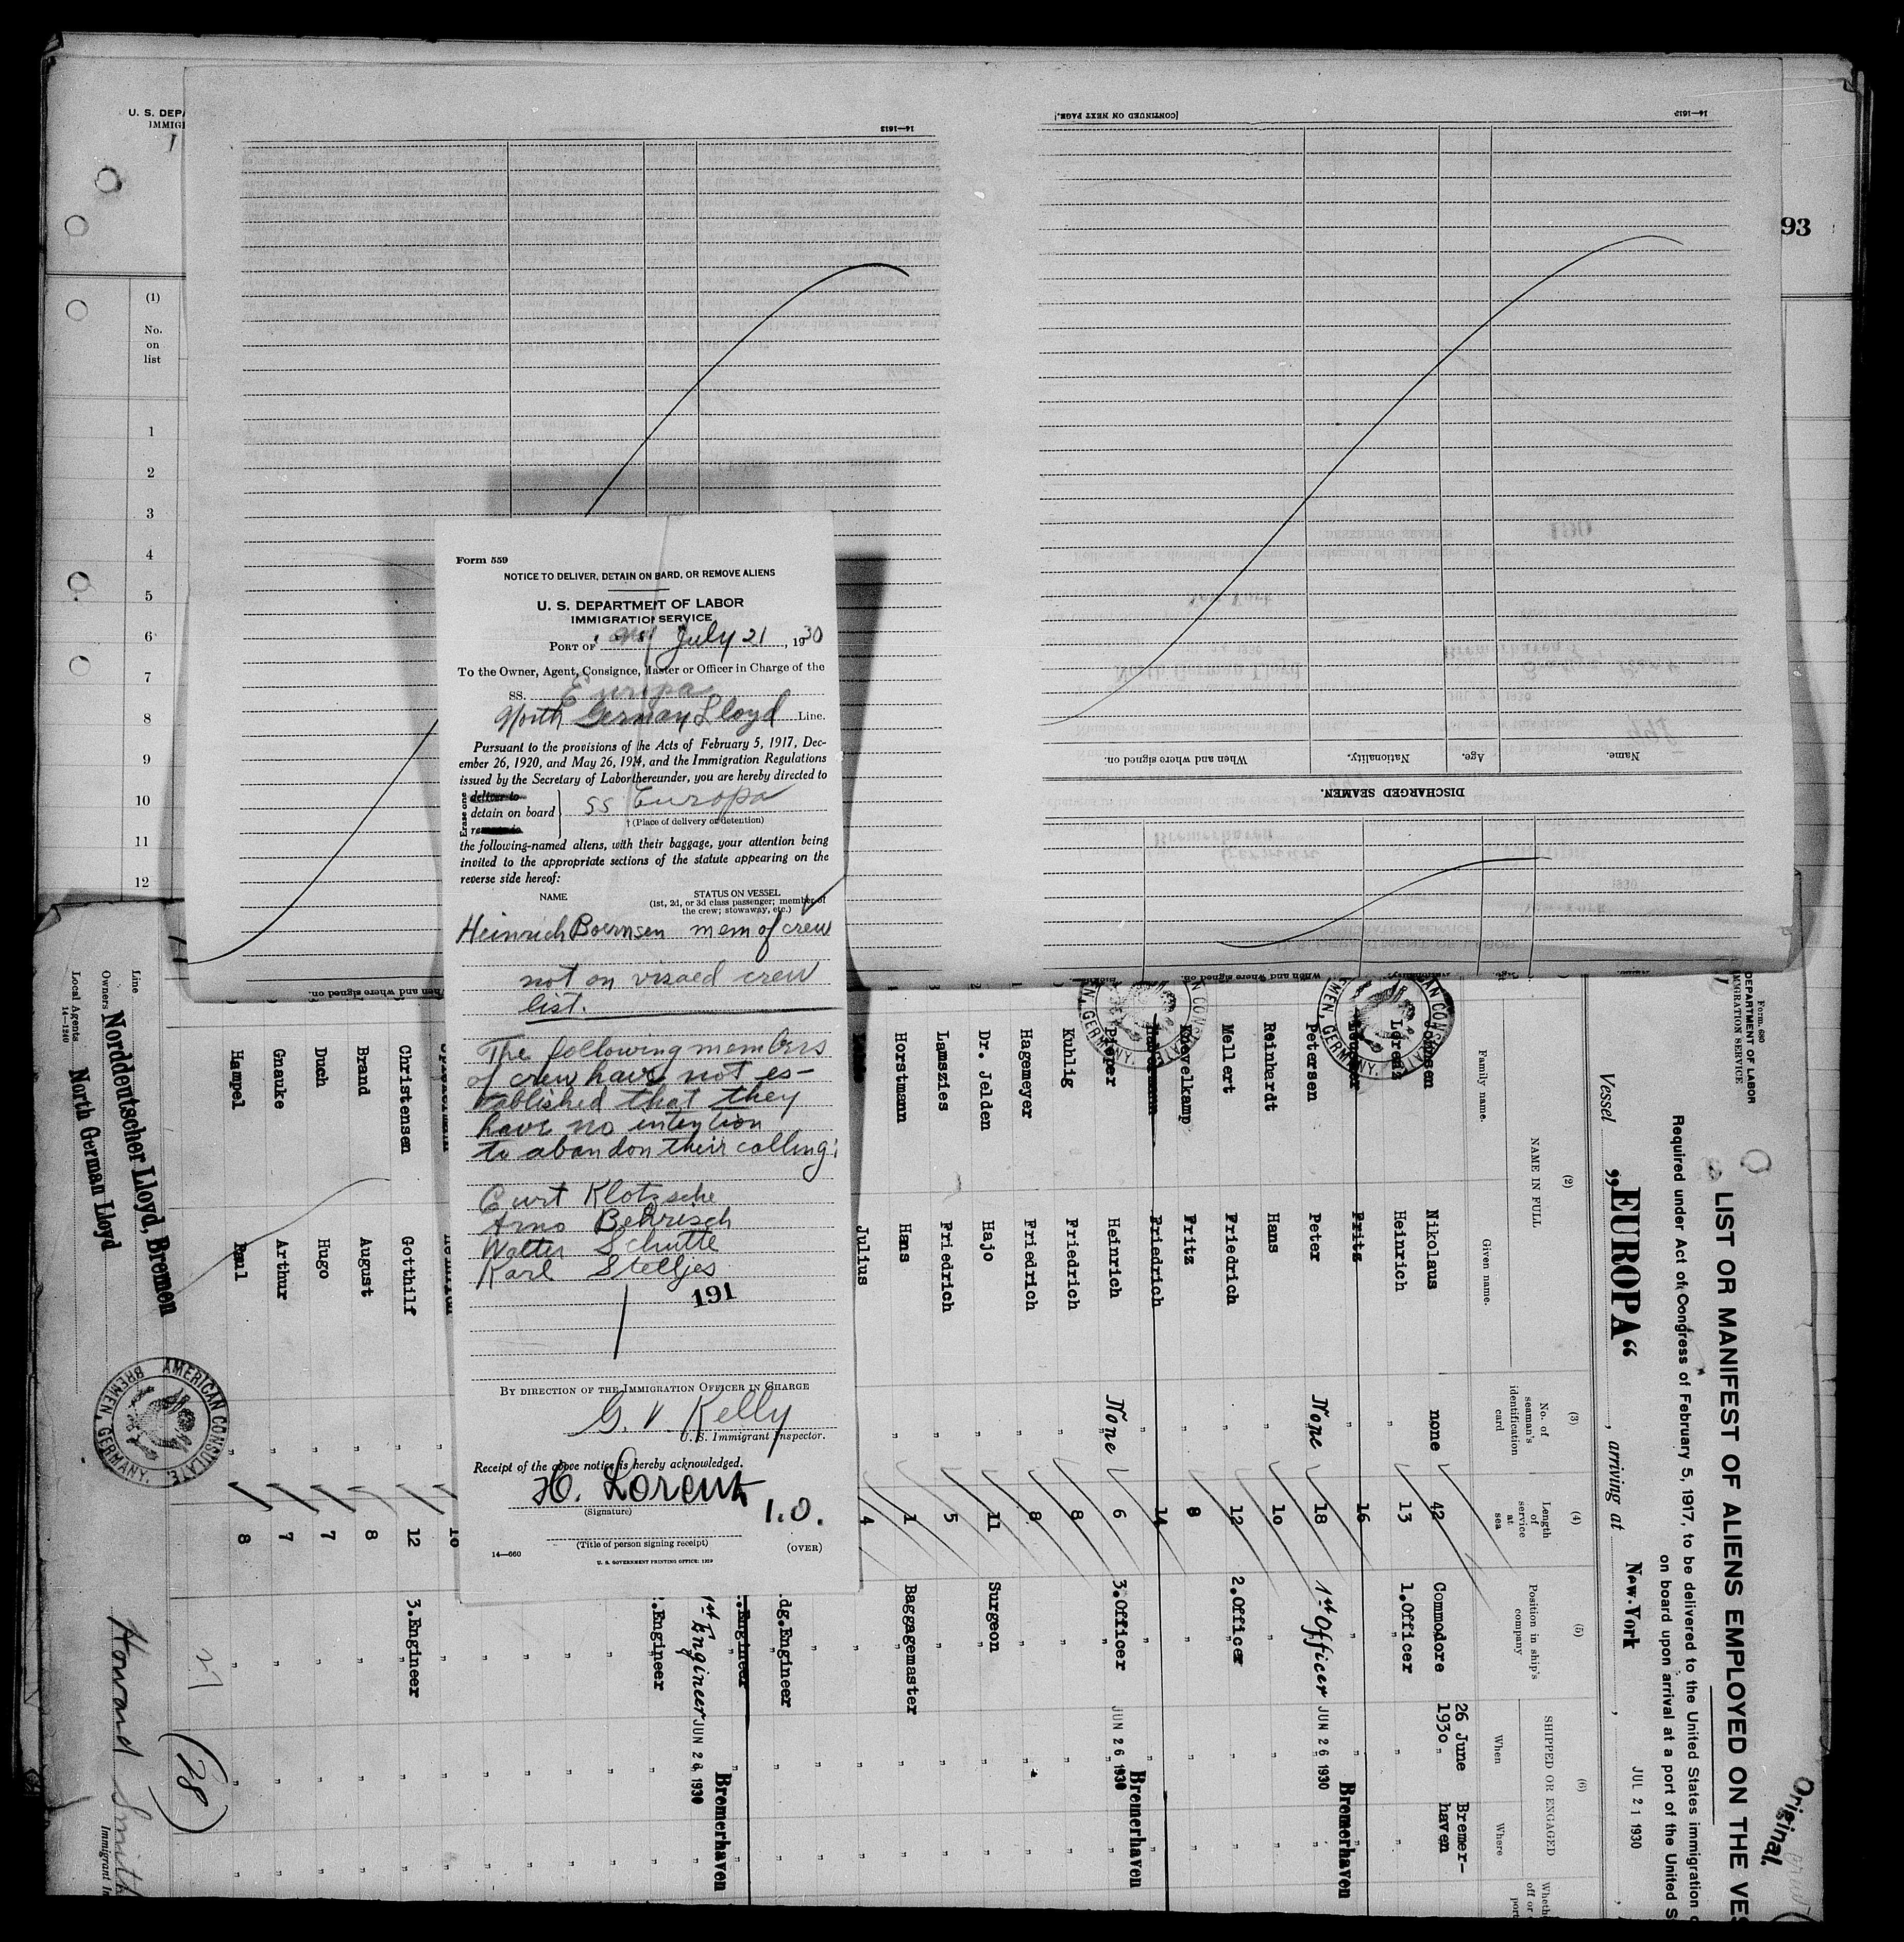 U. S. DEPA
IMMIG
(1)
No.
on
list
1
2
3
4
5
6
7
8
9
10
11
12
14—1613
[CONTINUED ON NEXT PAGE.]
14—1613
93
When and where signed on.
Nationality.
Age.
Name.
DISCHARGED SEAMEN.
Form 559
NOTICE TO DELIVER, DETAIN ON BARD, OR REMOVE ALIENS
U. S. DEPARTMENT OF LABOR
IMMIGRATION SERVICE
PORT OF July 21, 1930
To the Owner, Agent, Consignee, Master or Officer in Charge of the
SS. Europa
North German Lloyd Line.
Pursuant to the provisions of the Acts of February 5, 1917, Dec-
ember 26, 1920, and May 26, 1924, and the Immigration Regulations
issued by the Secretary of Labor thereunder, you are hereby directed to
Erase one
deliver to
detain on board
remove to
SS Europa
† (Place of delivery or detention)
the following-named aliens, with their baggage, your attention being
invited to the appropriate sections of the statute appearing on the
reverse side hereof:
NAME
STATUS ON VESSEL
(1st, 2d, or 3d class passenger; member of
the crew; stowaway, etc.)
Heinrich Boernsen mem of crew
not on visaed crew
list.
The following members
of crew have not es-
tablished that they
have no intention
to abandon their calling:
Curt Klotzsche
Arno Behrisch
Walter Schutte
Karl Stelljes
191
BY DIRECTION OF THE IMMIGRATION OFFICER IN CHARGE
G. V. Kelly
U. S. Immigrant Inspector.
Receipt of the above notice is hereby acknowledged.
H. Lorenz
1.O.
(Signature)
(Title of person signing receipt)
14—660
U. S. GOVERNMENT PRINTING OFFICE: 1929
(OVER)
Form 680
DEPARTMENT OF LABOR
IMMIGRATION SERVICE
Original.
LIST OR MANIFEST OF ALIENS EMPLOYED ON THE VES
Required under Act of Congress of February 5, 1917, to be delivered to the United States immigration
on board upon arrival at a port of the United S
Vessel „EUROPA“, arriving at New-York, JUL 21 1930
(2)
NAME IN FULL
Family name.
Given name.
(3)
No. of
seaman's
identification
card
(4)
Length
of
service
at
sea
(5)
Position in ship's
company
(6)
SHIPPED OR ENGAGED
When
Where
Johnsen Nikolaus none 42 Commodore 26 June 1930 Bremer-haven
Lorenz Heinrich " 13 1.Officer " "
Fritz " 16 " " "
Petersen Peter None 18 1st Officer JUN 26 1930 Bremerhaven
Reinhardt Hans " 10 " " "
Mellert Friedrich " 12 2.Officer " "
Knevelkamp Fritz " 9 " " "
Friedrich 14 " " "
Pieper Heinrich None 6 3.Officer JUN 26 1930 Bremerhaven
Kuhlig Friedrich " 8 " " "
Hagemeyer Friedrich " 8 " " "
Dr. Jelden Hajo " 11 Surgeon " "
Lamszies Friedrich " 5 " " "
Horstmann Hans " 1 Baggagemaster " "
Julius 4 " " "
dg.Engineer
.Engineer
1st Engineer JUN 26 1930 Bremerhaven
.Engineer
Christensen Gotthilf " 12 3.Engineer " "
Brand August " 8 " " "
Duch Hugo " 7 " " "
Gnauke Arthur " 7 " " "
Hampel Paul " 8 " " "
AMERICAN CONSULATE.
BREMEN, GERMANY.
Line
Owners Norddeutscher Lloyd, Bremen
Local Agents North German Lloyd
14—1240
27
(28)
Howard Smith
Immigrant In